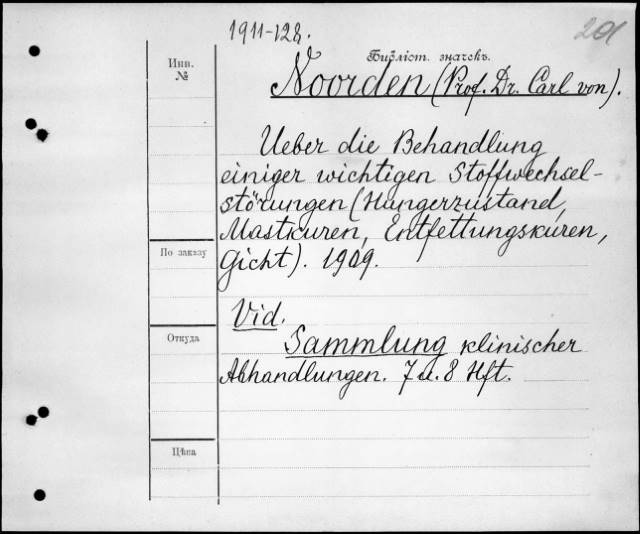 1911-128.
201
Библіот. значекъ.
Инв.
№
Noorden (Prof. Dr. Carl von).
Ueber die Behandlung
einiger wichtigen Stoffwechsel-
störungen (Hungerzustand,
Mastkuren, Entfettungskuren,
Gicht). 1909.
По заказу
Vid.
Откуда
Sammlung klinischer
Abhandlungen. 7 u. 8 Hft.
Цѣна